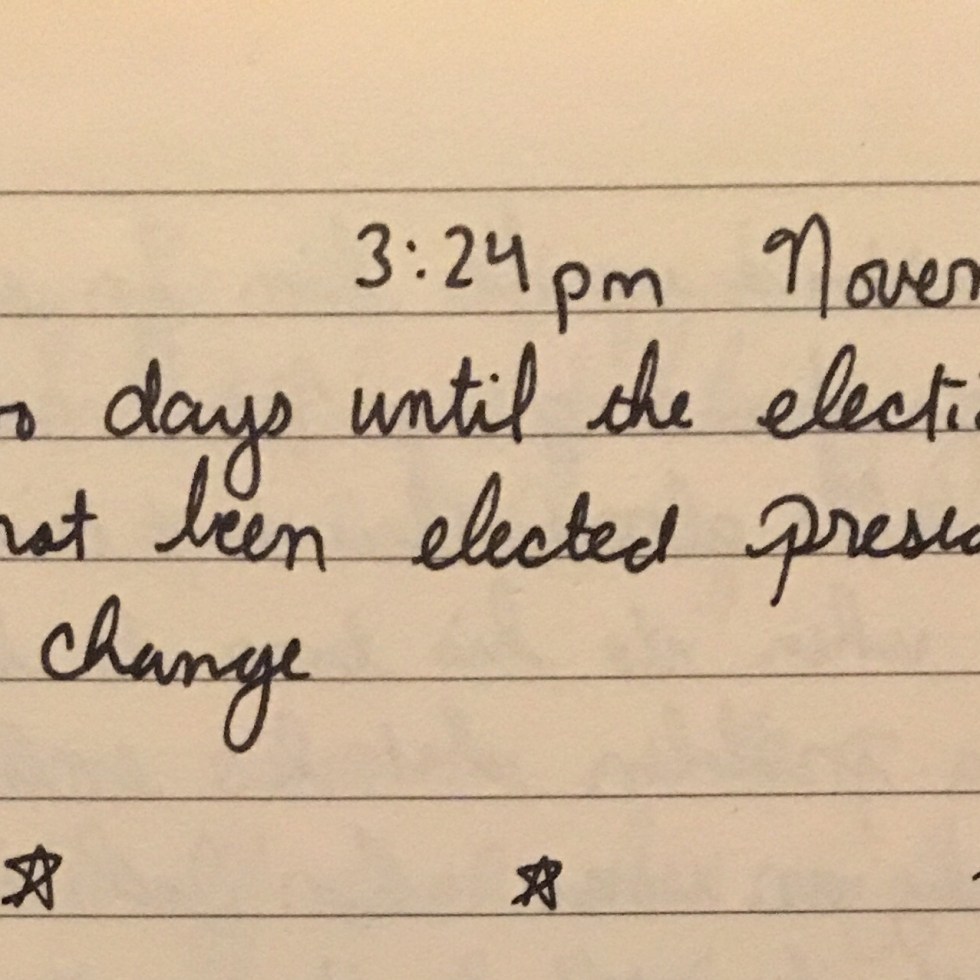 3:24pm Novem
o days until the electi
not been elected presid
change